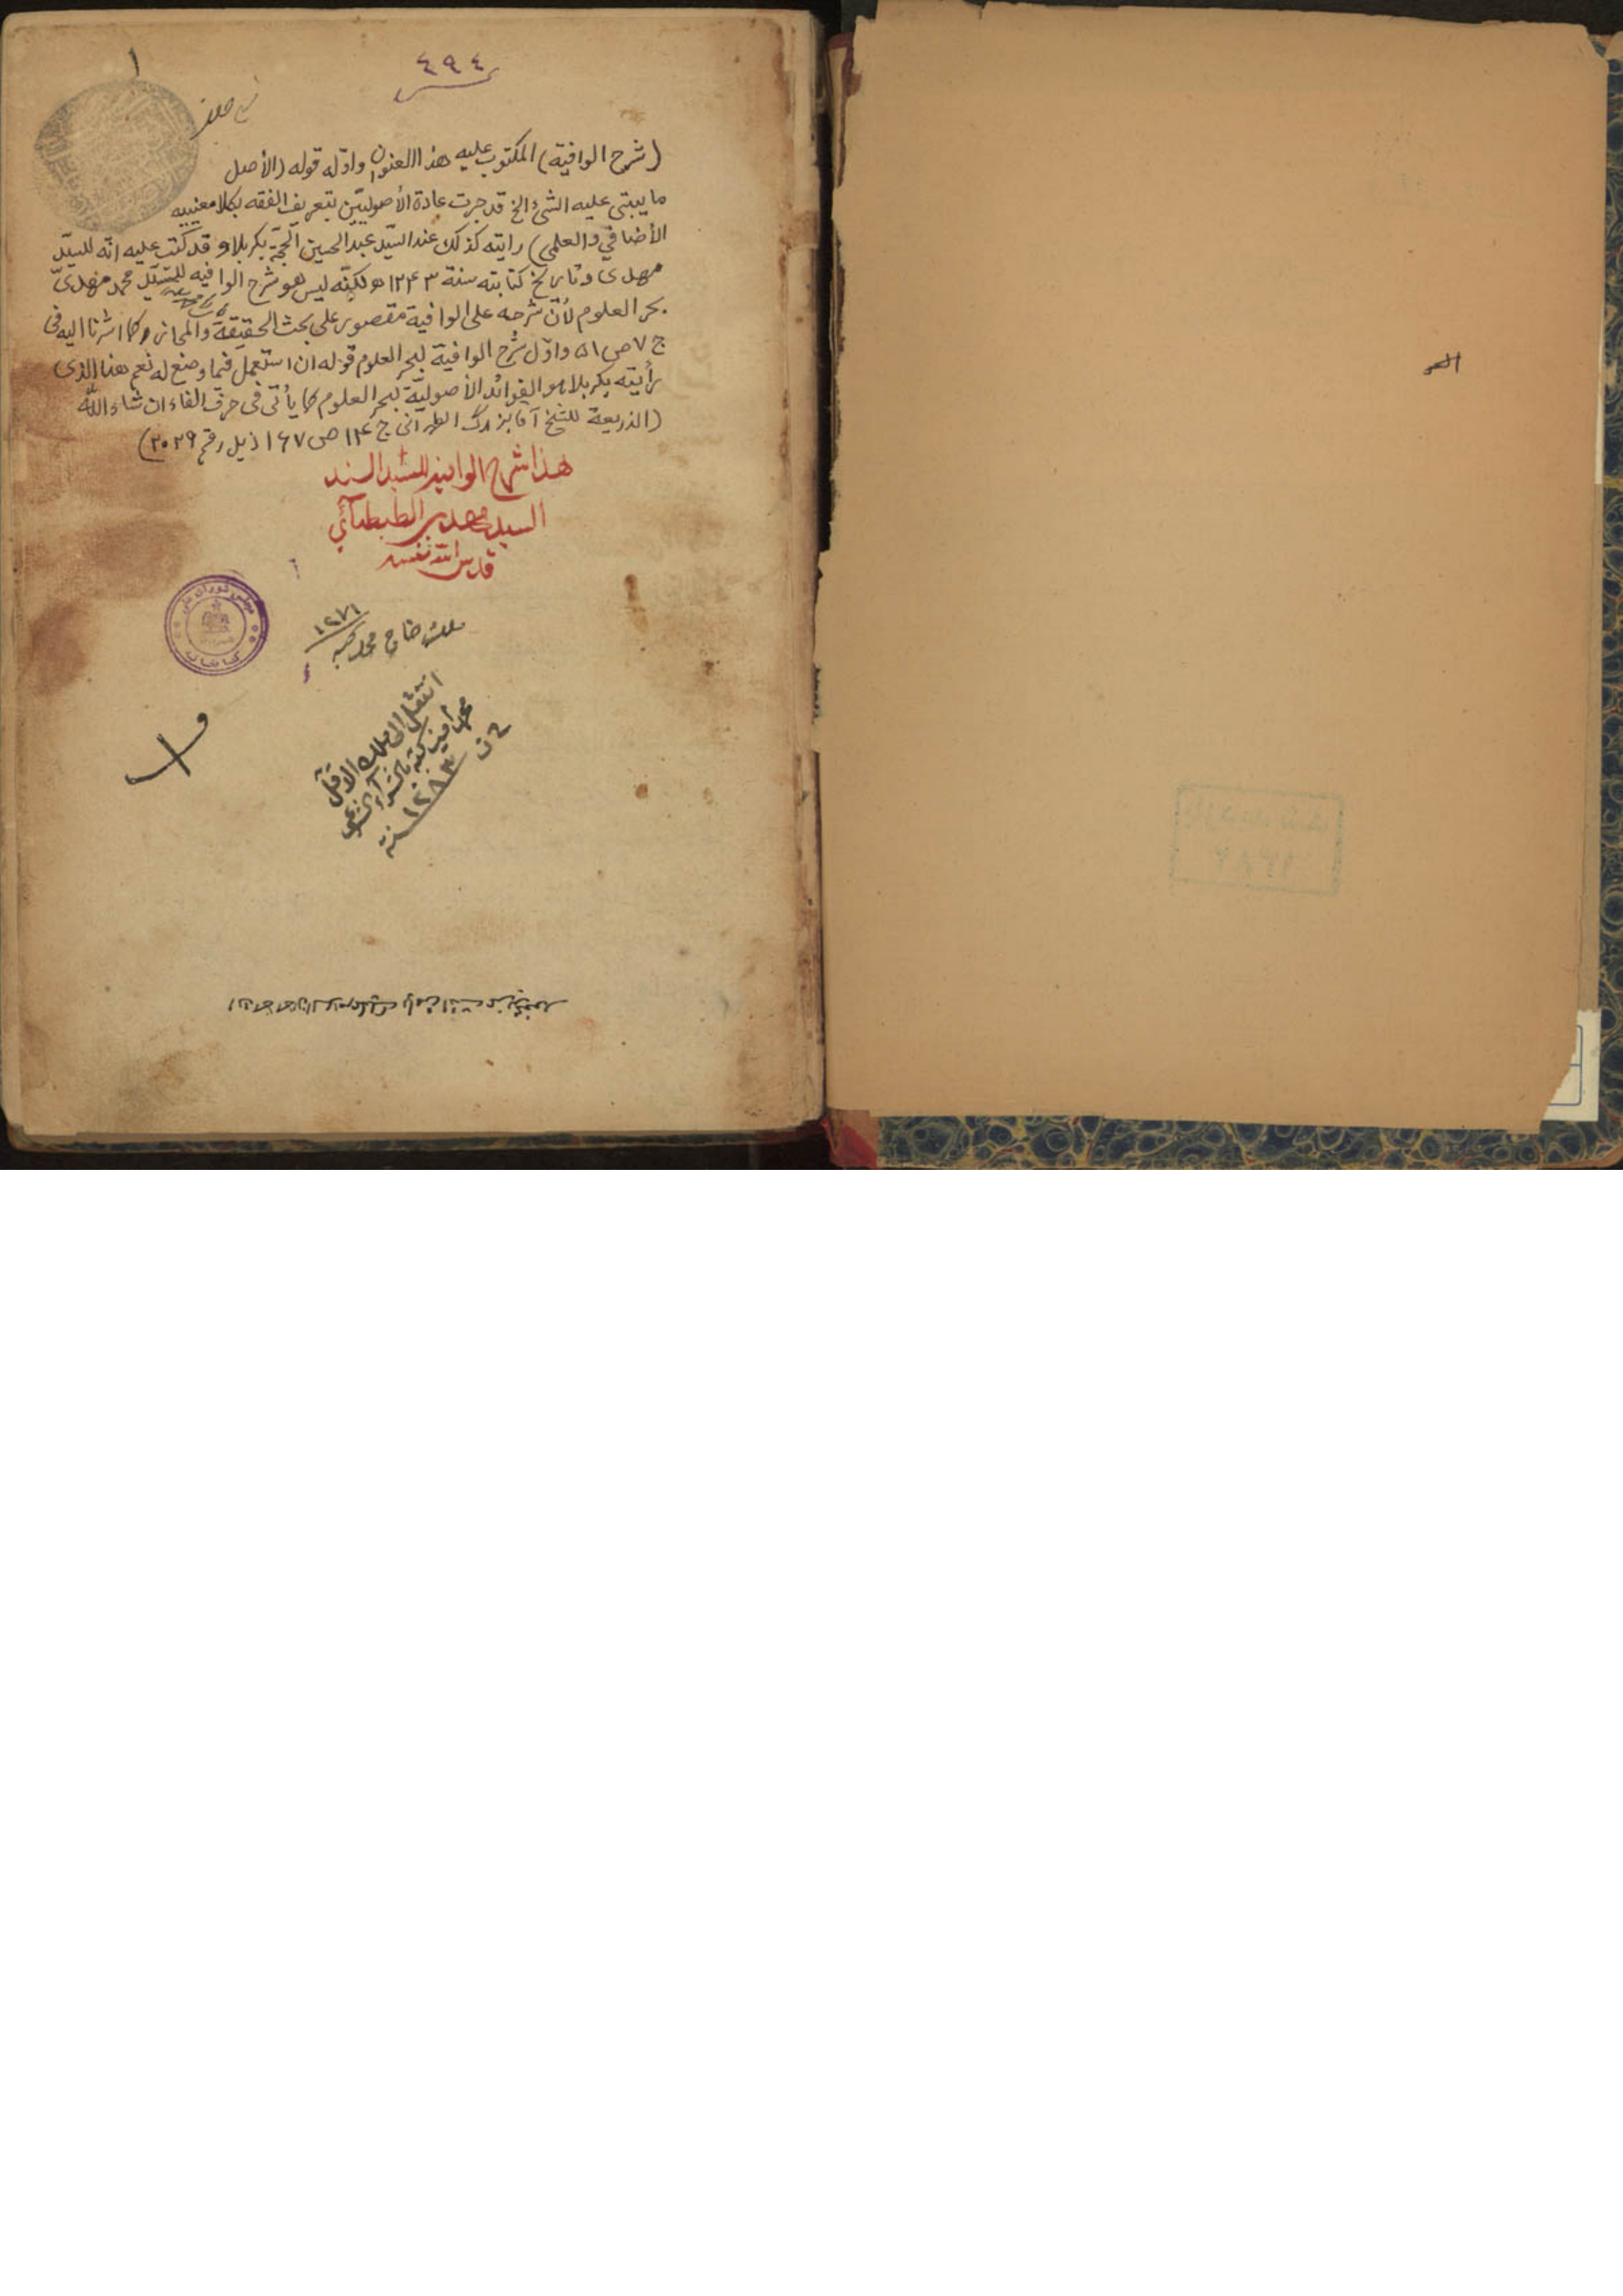 ٤٩٤
١
(شرح الوافية) المكتوب عليه هذا العنوان واوّله قوله (الأصل
ما يبتنى عليه الشئ الخ قد جرت عادة الأصوليّين بتعريف الفقه بكلا معنييه
الأضافي والعلمى) رايته كذلك عند السيّد عبد الحسين الحجّة بكربلاء وقد كتب عليه انّه للسيّد
مهدى وتاريخ كتابته سنة ١٢۴٣ ه ولكنّه ليس هو شرح الوافيه للسيّد محمد مهدىّ
بحر العلوم لأنّ شرحه على الوافية مقصور على بحث الحقيقة والمجاز كما اشرنا اليه فى
ج ٧ ص ۵١ واوّل شرح الوافية لبحر العلوم قوله ان استعمل فيما وضع له نعم هذا الذى
رأيته بكربلا هو الفوائد الأصوليّة لبحر العلوم كما يأتى فى حرف الفاء ان شاء اللّه
(الذريعة للشيخ آقا بزرگ الطهرانى ج ١۴ ص ١۶٧ ذيل رقم ٢٠٢٩)
هذا شرح الوافيه للسيد السند
السيد مهدي الطبطبائي
قدس الله نفسه
مجلس شوراى ملى
كتابخانه
١٢٧١
محمد
انتقل الى ملك الاقل
محمد أمين كبه بالشراء الشرعي
سنة ١٢٨٣
بازديد شد
١٣٨٢